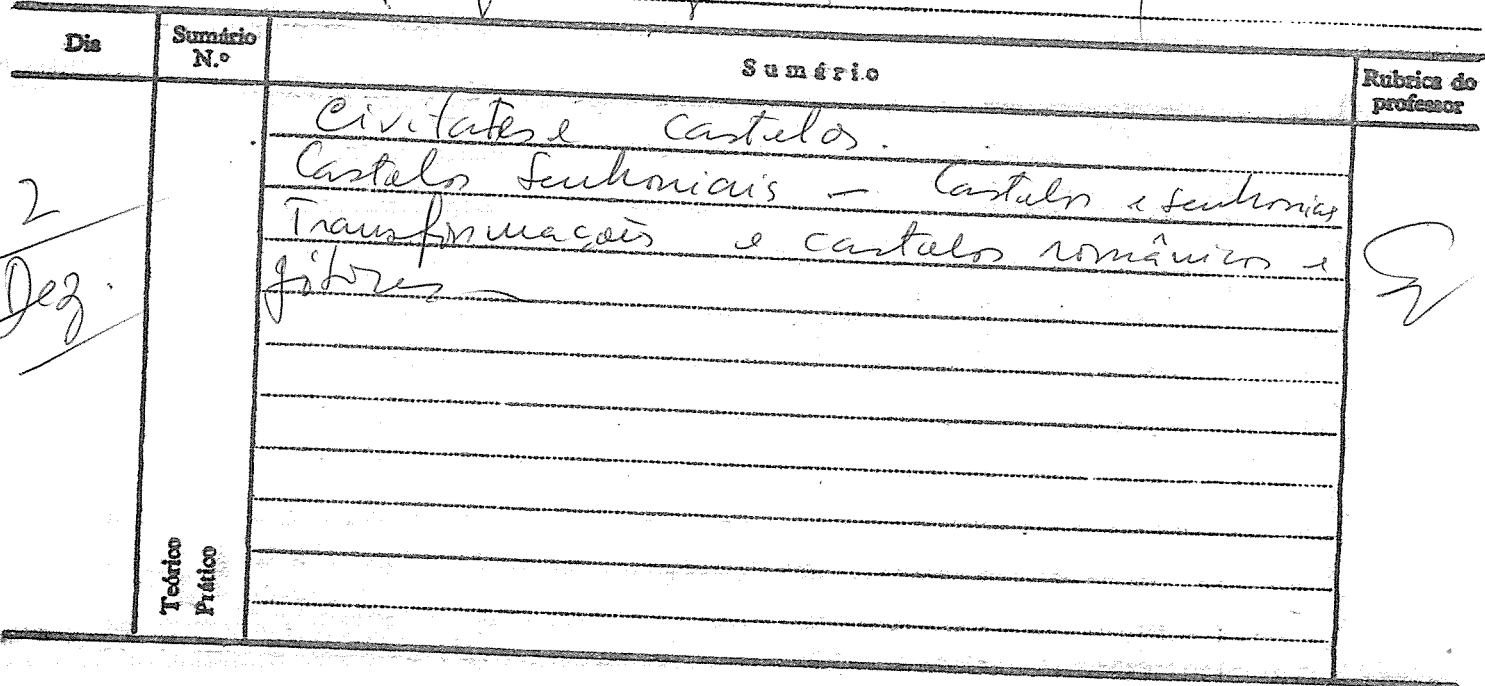 Dia
Sumário
N.º
Sumário
Rubrica do
professor
2
Dez.
Civitates e castelos.
Castelos Senhoriais – Castelos e senhorias
Transformações e castelos românicos e
góticos –
Teórico
Prático